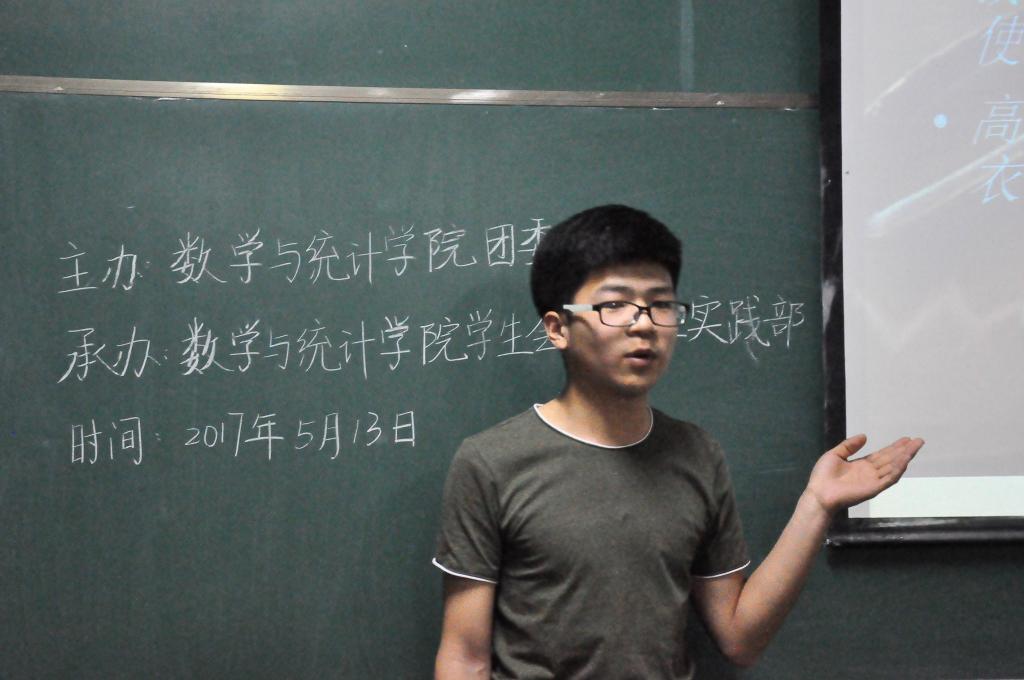 主办: 数学与统计学院团委
承办: 数学与统计学院学生会 实践部
时间: 2017年5月13日
使
• 高
衣